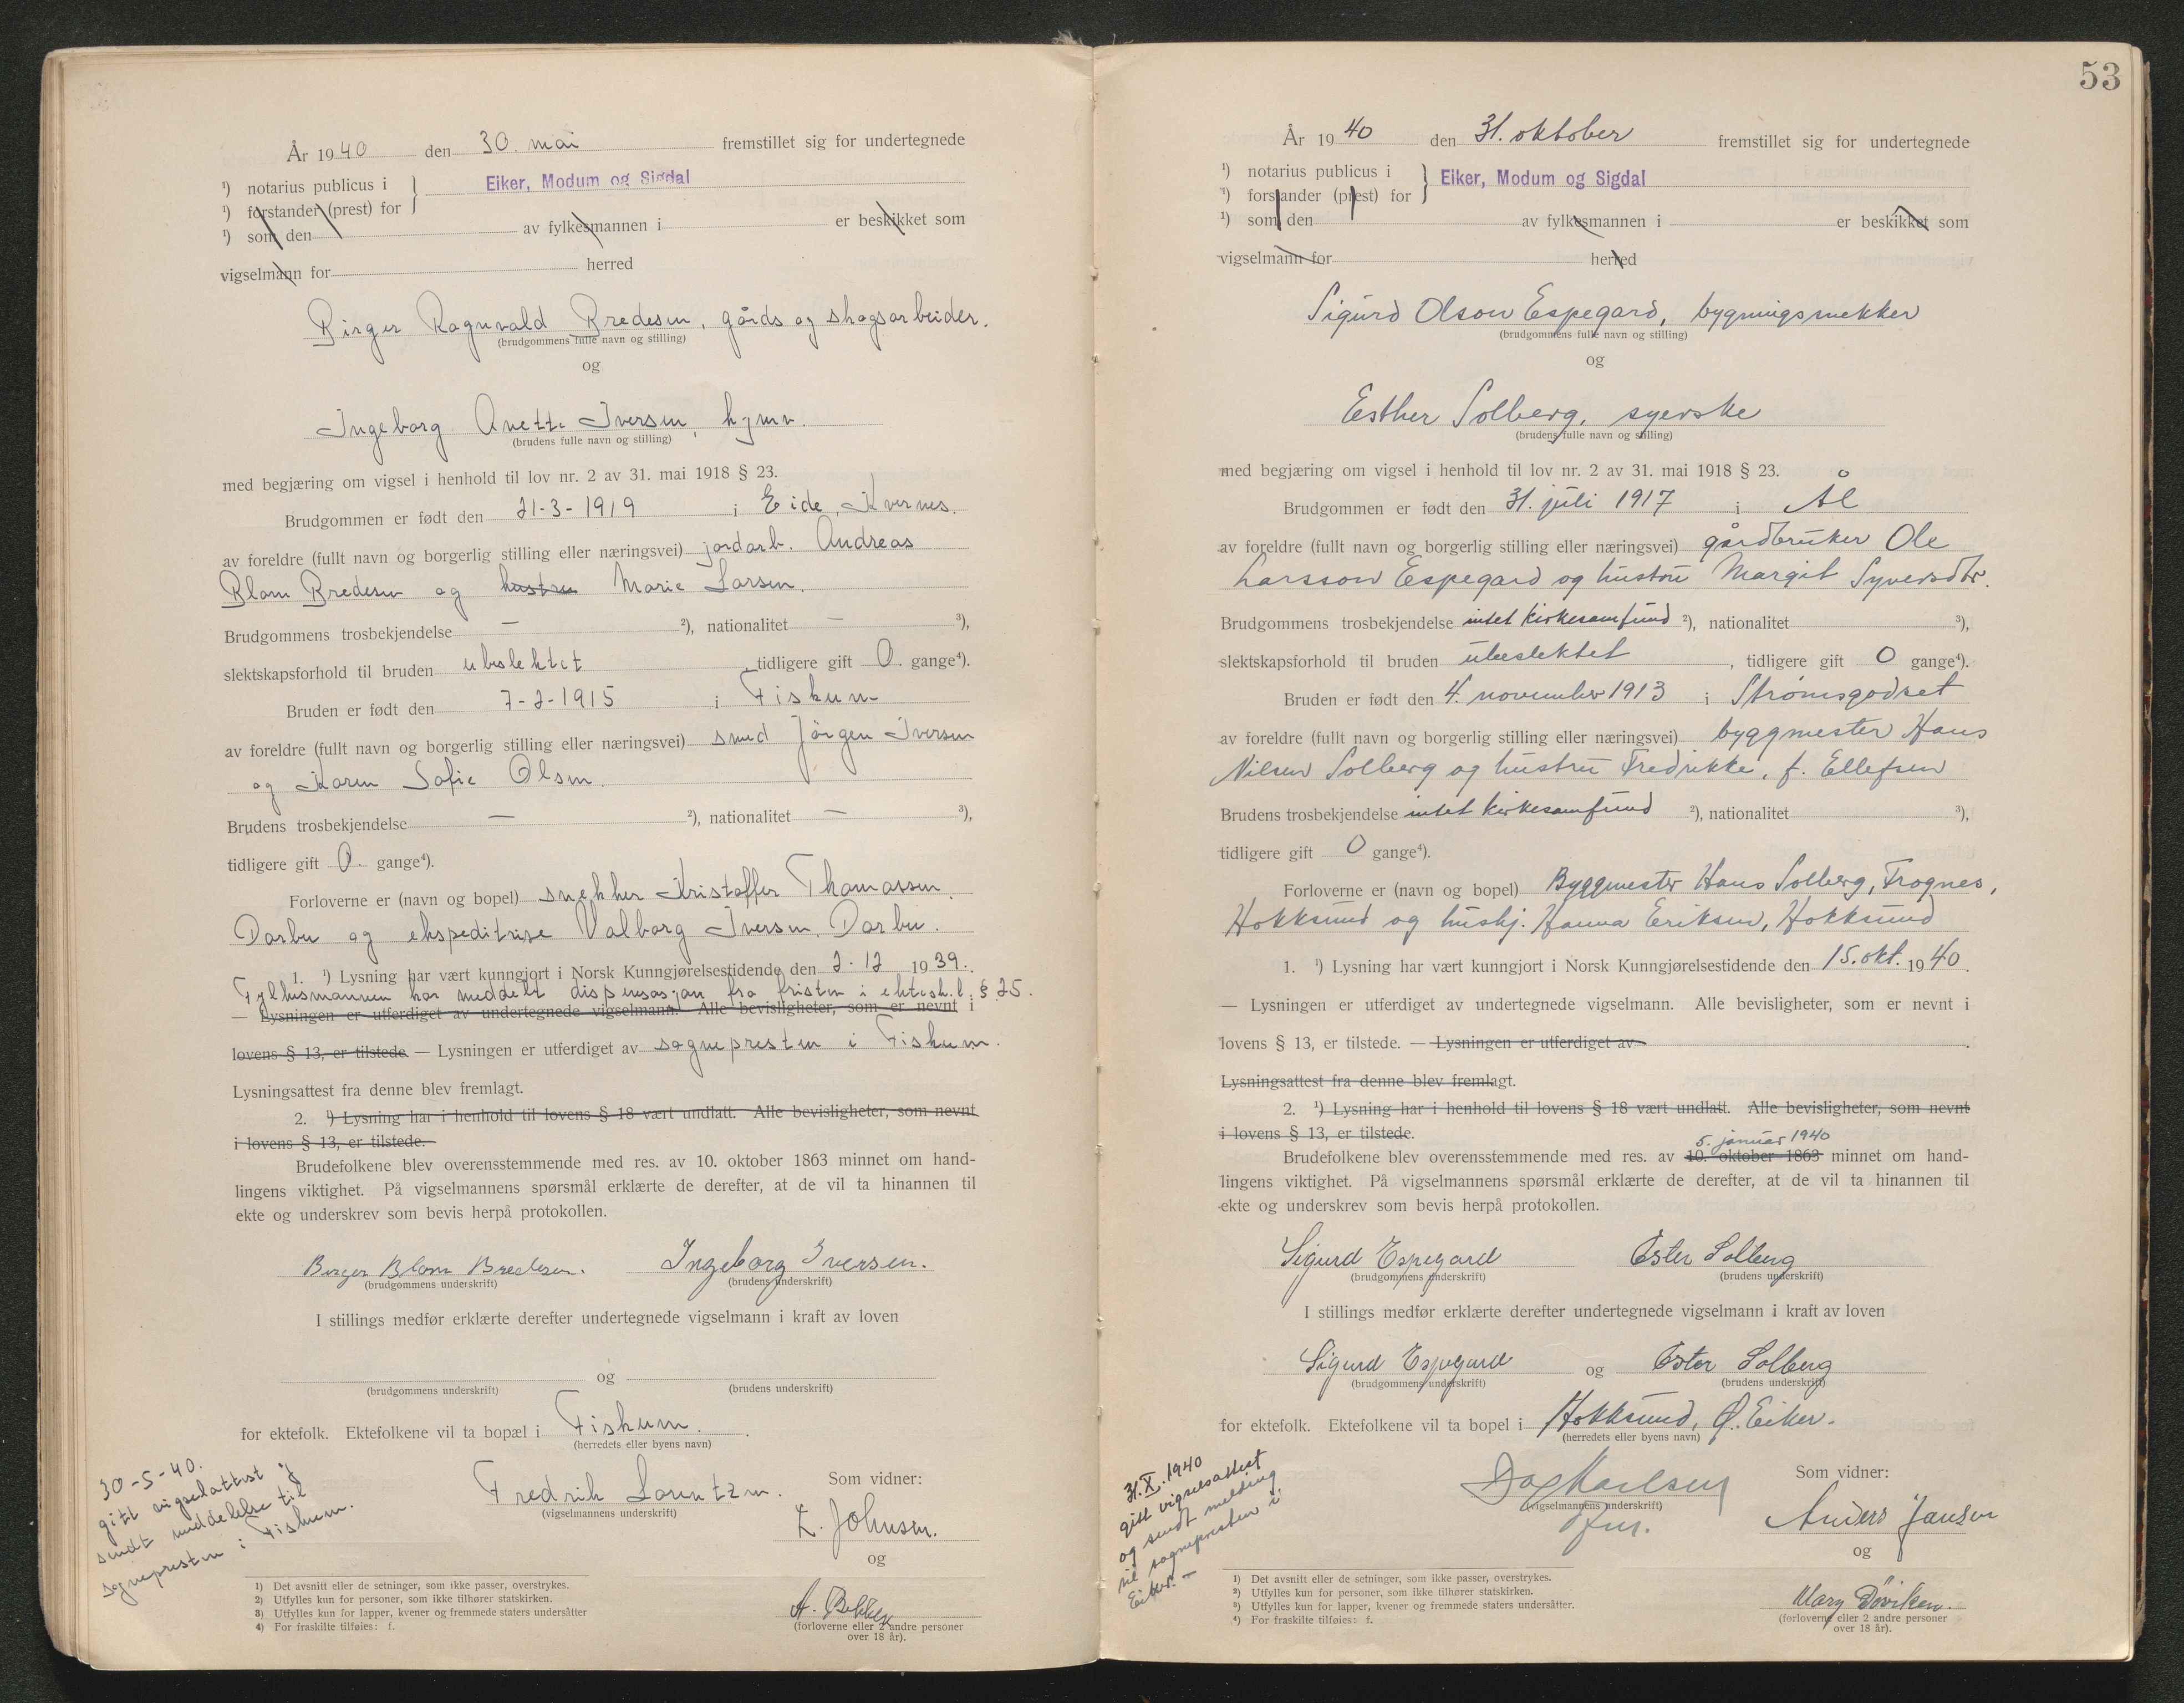 År 1940 den 30. mai fremstillet sig for undertegnede
¹) notarius publicus i } Eiker, Modum og Sigdal
¹) forstander (prest) for
¹) som den av fylkesmannen i er beskikket som
vigselmann for herred
Birger Ragnvald Bredesen, gårds og skogsarbeider.
(brudgommens fulle navn og stilling)
og
Ingeborg Anette Iversen, hjmv.
(brudens fulle navn og stilling)
med begjæring om vigsel i henhold til lov nr. 2 av 31. mai 1918 § 23.
Brudgommen er født den 21-3-1919 i Eide, Kvernes.
av foreldre (fullt navn og borgerlig stilling eller næringsvei) jordarb. Andreas
Blom Bredesen og hustru Marie Larsen.
Brudgommens trosbekjendelse — ²), nationalitet — ³),
slektskapsforhold til bruden ubeslektet, tidligere gift 0 gange⁴).
Bruden er født den 7-2-1915 i Fiskum
av foreldre (fullt navn og borgerlig stilling eller næringsvei) smed Jørgen Iversen
og Karen Sofie Olsen.
Brudens trosbekjendelse — ²), nationalitet — ³),
tidligere gift 0. gange⁴).
Forloverne er (navn og bopel) snekker Kristoffer Thomassen,
Darbu og ekspeditrise Valborg Iversen, Darbu.
1. ¹) Lysning har vært kunngjort i Norsk Kunngjørelsestidende den 2.12 1939.
Fylkesmannen har meddelt dispensasjon fra fristen i ektesk.l. § 25.
— Lysningen er utferdiget av undertegnede vigselmann. Alle bevisligheter, som er nevnt i
lovens § 13, er tilstede. — Lysningen er utferdiget av sognepresten i Fiskum.
Lysningsattest fra denne blev fremlagt.
2. ¹) Lysning har i henhold til lovens § 18 vært undlatt. Alle bevisligheter, som nevnt
i lovens § 13, er tilstede.
Brudefolkene blev overensstemmende med res. av 10. oktober 1863 minnet om hand-
lingens viktighet. På vigselmannens spørsmål erklærte de derefter, at de vil ta hinannen til
ekte og underskrev som bevis herpå protokollen.
Birger Blom Bredesen. Ingeborg Iversen.
(brudgommens underskrift) (brudens underskrift)
I stillings medfør erklærte derefter undertegnede vigselmann i kraft av loven
og
(brudgommens underskrift) (brudens underskrift)
for ektefolk. Ektefolkene vil ta bopæl i Fiskum.
(herredets eller byens navn)
30-5-40.
gitt vigselattest
sendt meddelelse til
sognepresten i Fiskum.
Fredrik Lorentzen.
(vigselmannens underskrift)
Som vidner:
Z. Johnsen.
og
A. Bekken
(forloverne eller 2 andre personer
over 18 år).
1) Det avsnitt eller de setninger, som ikke passer, overstrykes.
2) Utfylles kun for personer, som ikke tilhører statskirken.
3) Utfylles kun for lapper, kvener og fremmede staters undersåtter
4) For fraskilte tilføies: f.
53
År 1940 den 31. oktober fremstillet sig for undertegnede
¹) notarius publicus i } Eiker, Modum og Sigdal
¹) forstander (prest) for
¹) som den av fylkesmannen i er beskikket som
vigselmann for herred
Sigurd Olson Espegard, bygningssnekker
(brudgommens fulle navn og stilling)
og
Esther Solberg, syerske
(brudens fulle navn og stilling)
med begjæring om vigsel i henhold til lov nr. 2 av 31. mai 1918 § 23.
Brudgommen er født den 31. juli 1917 i Ål
av foreldre (fullt navn og borgerlig stilling eller næringsvei) gårdbruker Ole
Larsson Espegard og hustru Margit Syversdtr.
Brudgommens trosbekjendelse intet kirkesamfund ²), nationalitet ³),
slektskapsforhold til bruden ubeslektet, tidligere gift 0 gange⁴).
Bruden er født den 4. november 1913 i Strømsgodset
av foreldre (fullt navn og borgerlig stilling eller næringsvei) byggmester Hans
Nilsen Solberg og hustru Fredrikke, f. Ellefsen
Brudens trosbekjendelse intet kirkesamfund ²), nationalitet ³),
tidligere gift 0 gange⁴).
Forloverne er (navn og bopel) Byggmester Hans Solberg, Frognes,
Hokksund og hushj. Hanna Eriksen, Hokksund
1. ¹) Lysning har vært kunngjort i Norsk Kunngjørelsestidende den 15. okt. 1940.
— Lysningen er utferdiget av undertegnede vigselmann. Alle bevisligheter, som er nevnt i
lovens § 13, er tilstede. — Lysningen er utferdiget av
Lysningsattest fra denne blev fremlagt.
2. ¹) Lysning har i henhold til lovens § 18 vært undlatt. Alle bevisligheter, som nevnt
i lovens § 13, er tilstede.
5. januar 1940
Brudefolkene blev overensstemmende med res. av 10. oktober 1863 minnet om hand-
lingens viktighet. På vigselmannens spørsmål erklærte de derefter, at de vil ta hinannen til
ekte og underskrev som bevis herpå protokollen.
Sigurd Espegard Ester Solberg
(brudgommens underskrift) (brudens underskrift)
I stillings medfør erklærte derefter undertegnede vigselmann i kraft av loven
Sigurd Espegard og Ester Solberg
(brudgommens underskrift) (brudens underskrift)
for ektefolk. Ektefolkene vil ta bopel i Hokksund, Ø. Eiker.
(herredets eller byens navn)
31.X.1940
gitt vigselsattest
og sendt melding
til sognepresten i
Eiker. —
Dag Karlsen
(vigselmannens underskrift)
Som vidner:
Anders Jansen
og
Mary Døviken.
(forloverne eller 2 andre personer
over 18 år).
1) Det avsnitt eller de setninger, som ikke passer, overstrykes.
2) Utfylles kun for personer, som ikke tilhører statskirken.
3) Utfylles kun for lapper, kvener og fremmede staters undersåtter.
4) For fraskilte tilføies: f.